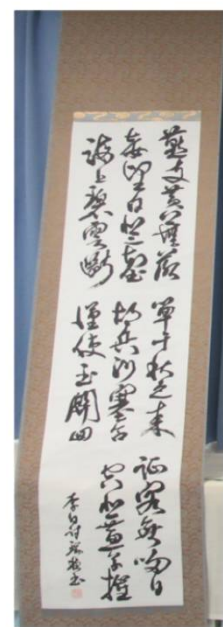 燕支黄葉落
妾望白登臺
海上碧雲斷
單于秋色來
胡兵沙塞合
漢使玉關回
征客無歸日
空悲蕙草摧
李白詩